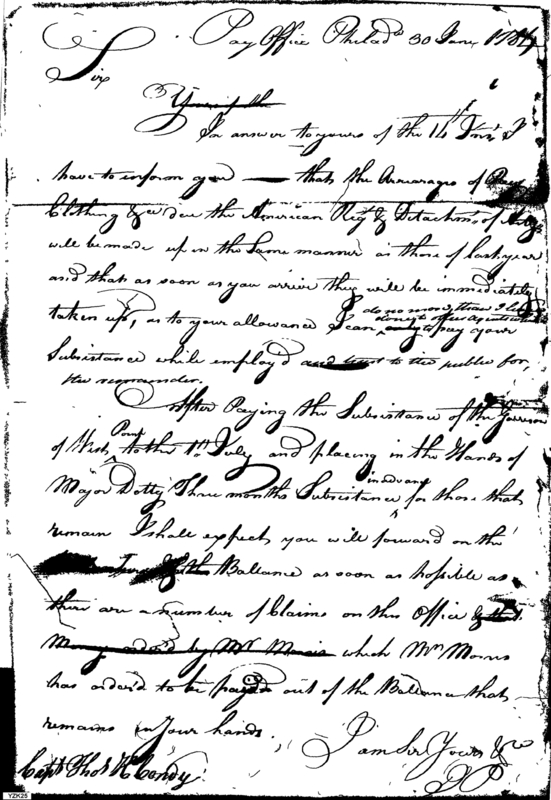 Pay Office Philada 30 June 1784
Sir
In answer to yours of the 14th Inst I
have to inform you — that the Arrearages of Pay
Clothing &c due the American Regt & Detachmt of Arty
will be made up in the same manner as those of last year
and that as soon as you arrive they will be immediately
do no more than I
taken up, as to your allowance I can, only to pay your
Subsistance while employ'd and trust to the public for
the remainder.
After Paying the Subsistance of the Garrison
Point
of West to the 1st July and placing in the Hands of
in advance
Major Dotty Three months Subsistance for those that
remain I shall expect you will forward on the
Ballance as soon as possible as
there are a number of Claims on this Office
Money order'd by Mr Morris which Mr Morris
has order'd to be payed out of the Ballance that
remains in Your hands.
I am Sir Yours &c
JP
Capt Thos H Condy
YZK25